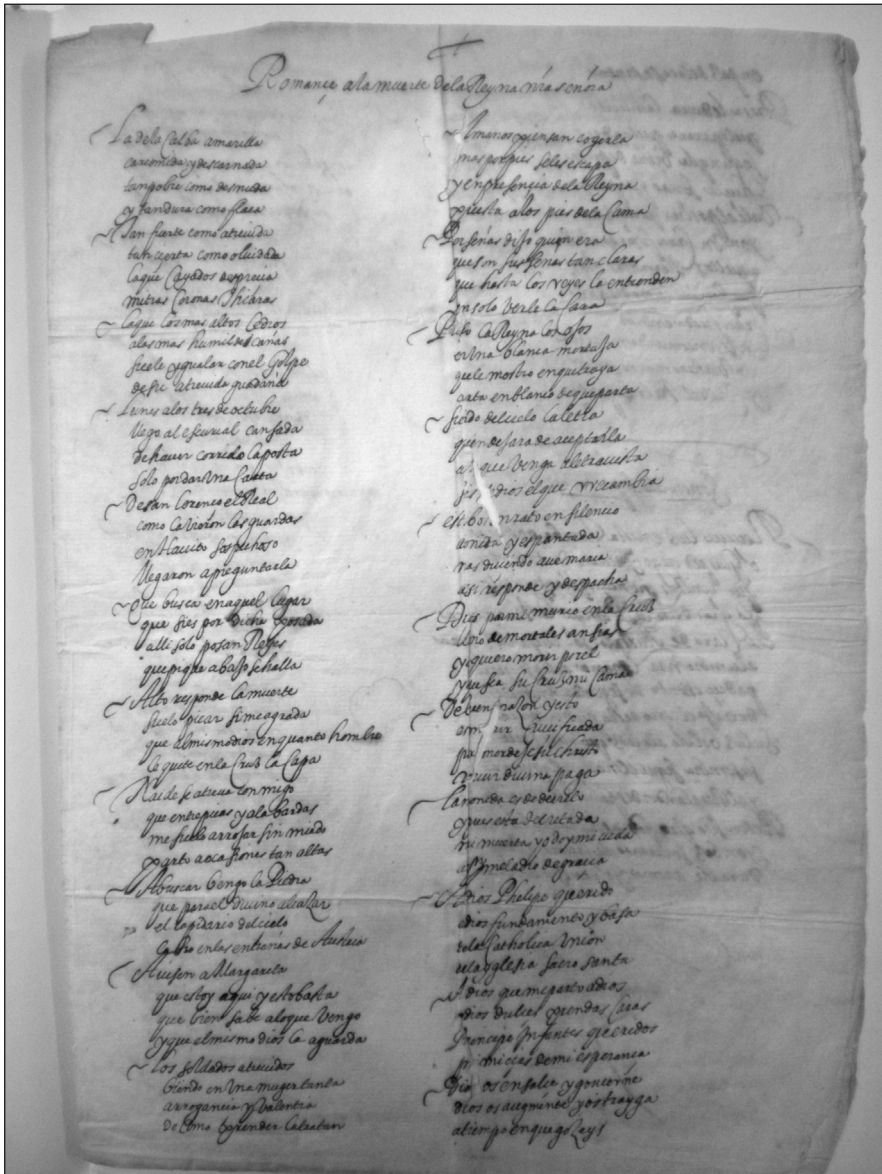 Romançe a la muerte de la Reyna nra señora
La de la Calba amarilla
carcomida y descarnada
tan pobre como desnuda
y tan dura como flaca
Tan fuerte como atreuida
tan cierta como oluidada
la que Cayados desprecia
mitras Coronas Thiaras
la que los mas altos Cedros
a las mas humildes cañas
suele ygualar con el Golpe
de su atreuida guadaña
Lunes a los tres de octubre
llego al escurial cansada
de hauer corrido la posta
solo por dar Vna Carta
De san Lorenço el Real
como la vieron las guardas
en Hauito sospechoso
llegaron a preguntarla
Que busca en aquel lugar
que si es por dicha posada
alli solo posan Reyes
que pique abajo se halla
Alto responde la muerte
suelo picar si me agrada
que al mismo dios en quanto hombre
le quite en la Cruz la Capa
Naide se atreua conmigo
que entre picas y alabardas
me suelo arrojar sin miedo
parto a ocasiones tan altas
A buscar bengo la Piedra
que para el diuino alcaLar
el lapidario del cielo
en las entrañas de Austria
Auisen a Margarita
que estoy aqui y esto basta
que bien sabe a lo que Vengo
y que el mismo dios la aguarda
Los soldados atreuidos
biendo en Vna muger tanta
arrogancia y Valentia
de como prender tratan
A manos piensan cogerla
mas por pies se les escapa
y en presençia de la Reyna
puesta a los pies de la Cama
Por señas dijo quien era
que son sus señas tan claras
que hasta los reyes la entienden
en solo Verle la Cara
la Reyna los ojos
en Vna blanca mortaja
que le mostro en que traya
carta en blanco de que parta
siendo del cielo la letra
quien dejara de aceptarla
que Venga
es dios el que
rato en silencio
y espantada
diciendo aue maria
asi responde y despacha
Dios por mi murio en la Cruz
de mortales ansias
yo quiero morir por el
y que sea su Cruz mi Cama
De buen raLon y esto
Cruçificada
por amor de Jesu Christo
diuina paga
pues esta decretada
mi muerte yo doy mi vida
Adios Phelipe querido
adios fundamento y basa
de la Catholica Vnion
de la yglesia sacro santa
Adios que me parto adios
adios dulces prendas Caras
Principe Infantes queridos
primicias de mi esperança
Dios os ensalce y gouierne
dios os augmente y os trayga
a tiempo en que goLeys